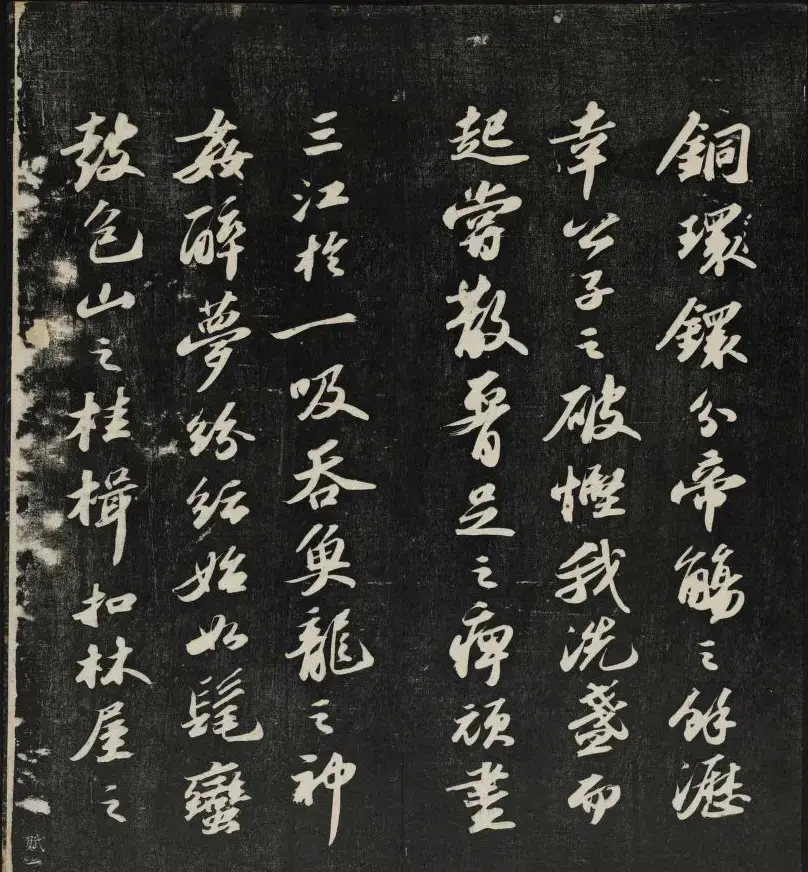 銅環鐶分帝觴之餘瀝
幸公子之破慳我洗盞而
起嘗散腰足之痺頑盡
三江於一吸吞魚龍之神
姦醉夢紛紜始如髦蠻
鼓包山之桂楫扣林屋之
賦一